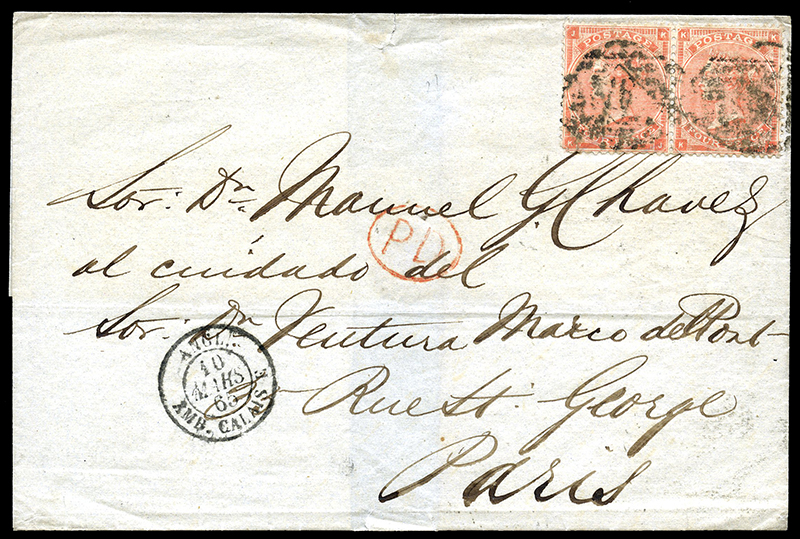 J K
K K
POSTAGE
POSTAGE
FOUR
K J
K K
Sor: Dn. Manuel G Chavez
PD
al cuidado del
Sor: Dn Ventura Marco del Pont
ANGL.
10
MARS
65
AMB. CALAIS
Rue St. George
Paris